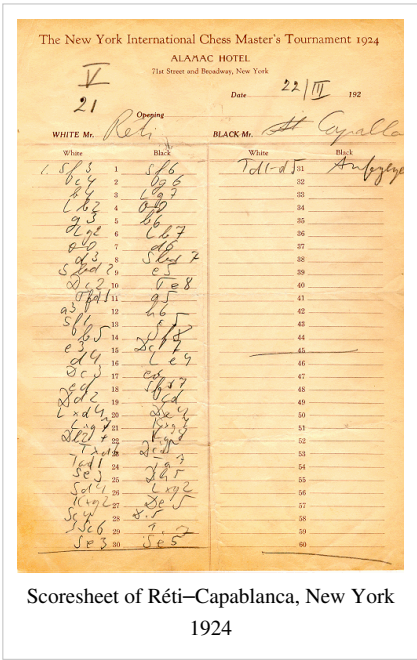 The New York International Chess Master's Tournament 1924
ALAMAC HOTEL
71st Street and Broadway, New York
V
21
Date 22/III 192
Opening
WHITE Mr. Réti BLACK Mr.
White Black White Black
1. Sf3 1 Sf6 Td1-d5 31
c4 2 g6 32
b4 3 Lg7 33
Lb2 4 0-0 34
g3 5 b6 35
Lg2 6 Lb7 36
0-0 7 d6 37
d3 8 Sbd7 38
Sbd2 9 e5 39
Dc2 10 Te8 40
Tfd1 11 a5 41
a3 12 h6 42
Sf1 13 c5 43
b5 14 Sf8 44
e3 15 Dc7 45
d4 16 Le4 46
Dc3 17 47
18 48
Dd2 19 49
Lxd4 20 50
Lxg7 21 Kxg7 51
Db2+ 22 Kg8 52
Txd6 23 Dc5 53
Tad1 24 Ta7 54
Se3 25 Dh5 55
Sd4 26 Lxg2 56
Kxg2 27 De5 57
Sc4 28 58
29 59
Se3 30 Se5 60
Scoresheet of Réti–Capablanca, New York
1924